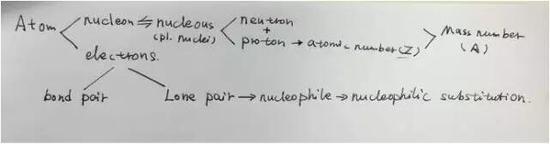 Atom nucleon ⇋ nucleous neutron
(pl. nuclei) +
proton → atomic number (Z) Mass number
(A)
electrons.
bond pair Lone pair → nucleophile → nucleophilic substitution.